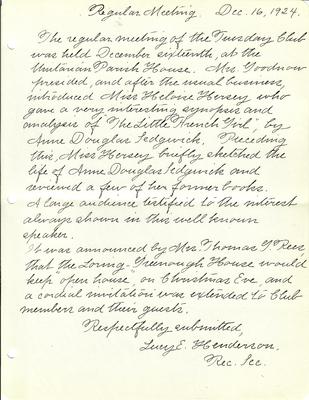 Regular Meeting. Dec. 16, 1924.
The regular meeting of the Tuesday Club
was held December sixteenth, at the
Unitarian Parish House. Mrs. Goodnow
presided, and after the usual business,
introduced Miss Heloise Hersey who
gave a very interesting synopsis and
analysis of "The Little French Girl", by
Anne Douglas Sedgwick. Preceding
this, Miss Hersey briefly sketched the
life of Anne Douglas Sedgwick and
reviewed a few of her former books.
A large audience testified to the interest
always shown in this well known
speaker.
It was announced by Mrs. Thomas J. Rees
that the Loring-Greenough House would
keep "open house" on Christmas Eve, and
a cordial invitation was extended to Club
members and their guests.
Respectfully submitted,
Lucy E. Henderson.
Rec. Sec.